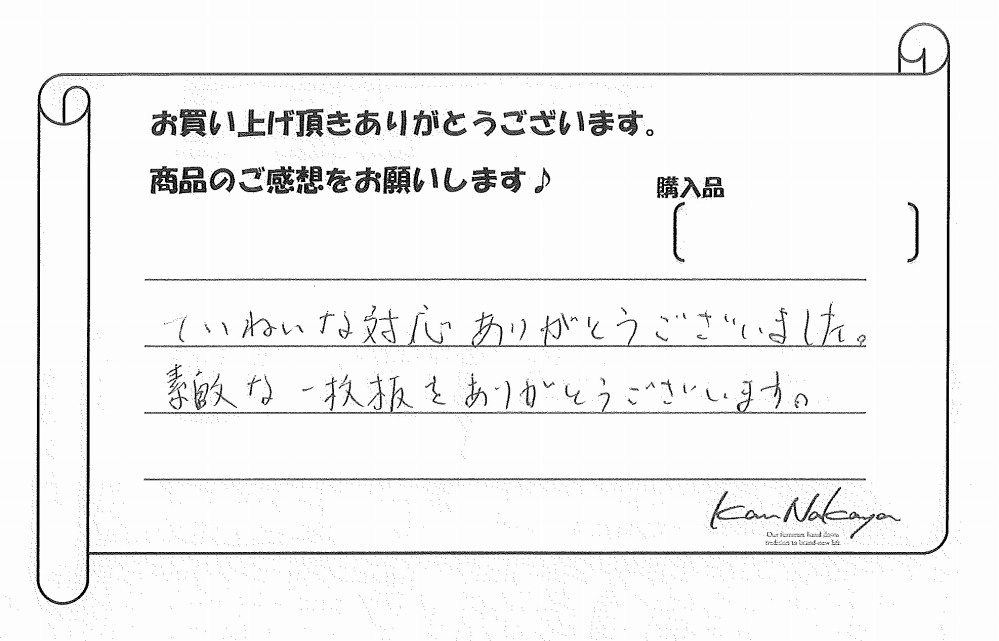 お買い上げ頂きありがとうございます。
商品のご感想をお願いします♪
購入品
ていねいな対応ありがとうございました。
素敵な一枚板をありがとうございます。
Kan Nakaya
Our furniture hand down
tradition to brand-new life